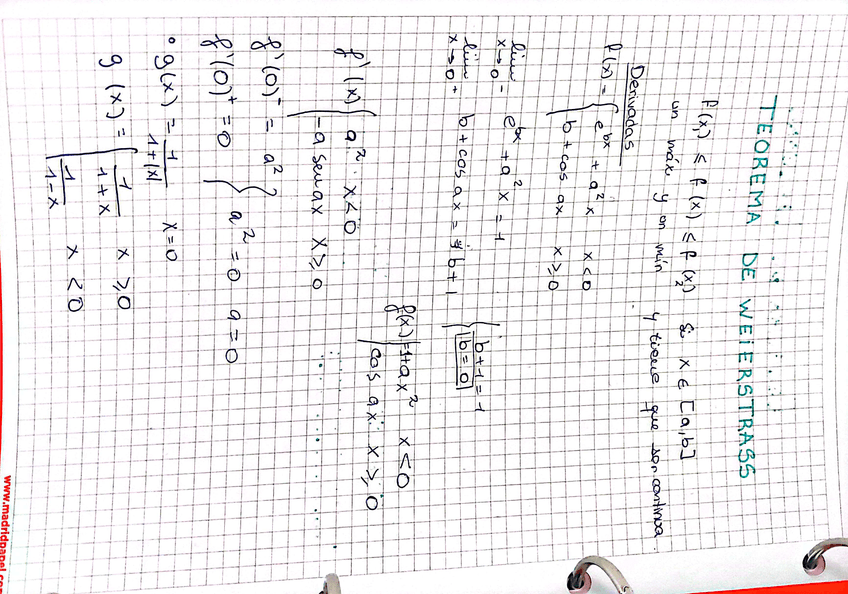 TEOREMA DE WEIERSTRASS
f(x₁) ≤ f(x) ≤ f(x₂) Si x ∈ [a,b]
un máx y un mín y tiene que ser continua.
Derivadas
f(x) = { e^bx + a²x x<0
b + cos ax x ≥ 0
lím x→0⁻ e^bx + a²x = 1
lím x→0⁺ b + cos ax = b + 1
b+1=1
b=0
f(x) = 1+ax² x<0
cos ax x ≥ 0
f'(x) { a² x<0
-a sen ax x ≥ 0
f'(0)⁻ = a²
f'(0)⁺ = 0
a² = 0 a = 0
• g(x) = 1/1+|x| x=0
g(x) = { 1/1+x x ≥ 0
1/1-x x < 0